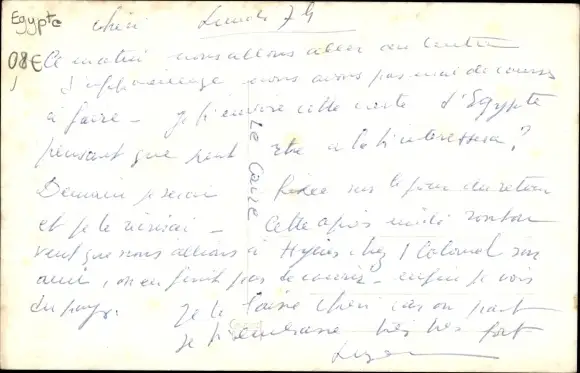 Egypte
08€
chéri Lundi 7h
Ce matin nous allons aller au centre
d'apprentissage nous avons pas mal de courses
à faire - je t'envoie cette carte d'Egypte
pensant que peut être cela t'interessera?
Demain je serai fixée sur le jour du retour
et je te dirai - Cette après midi tonton
veut que nous allions à Hyères chez 1 Colonel son
ami, on en finit pas de courir - enfin je vois
du pays. Je te laisse chéri car on part
je t'embrasse très très fort
Le Caire